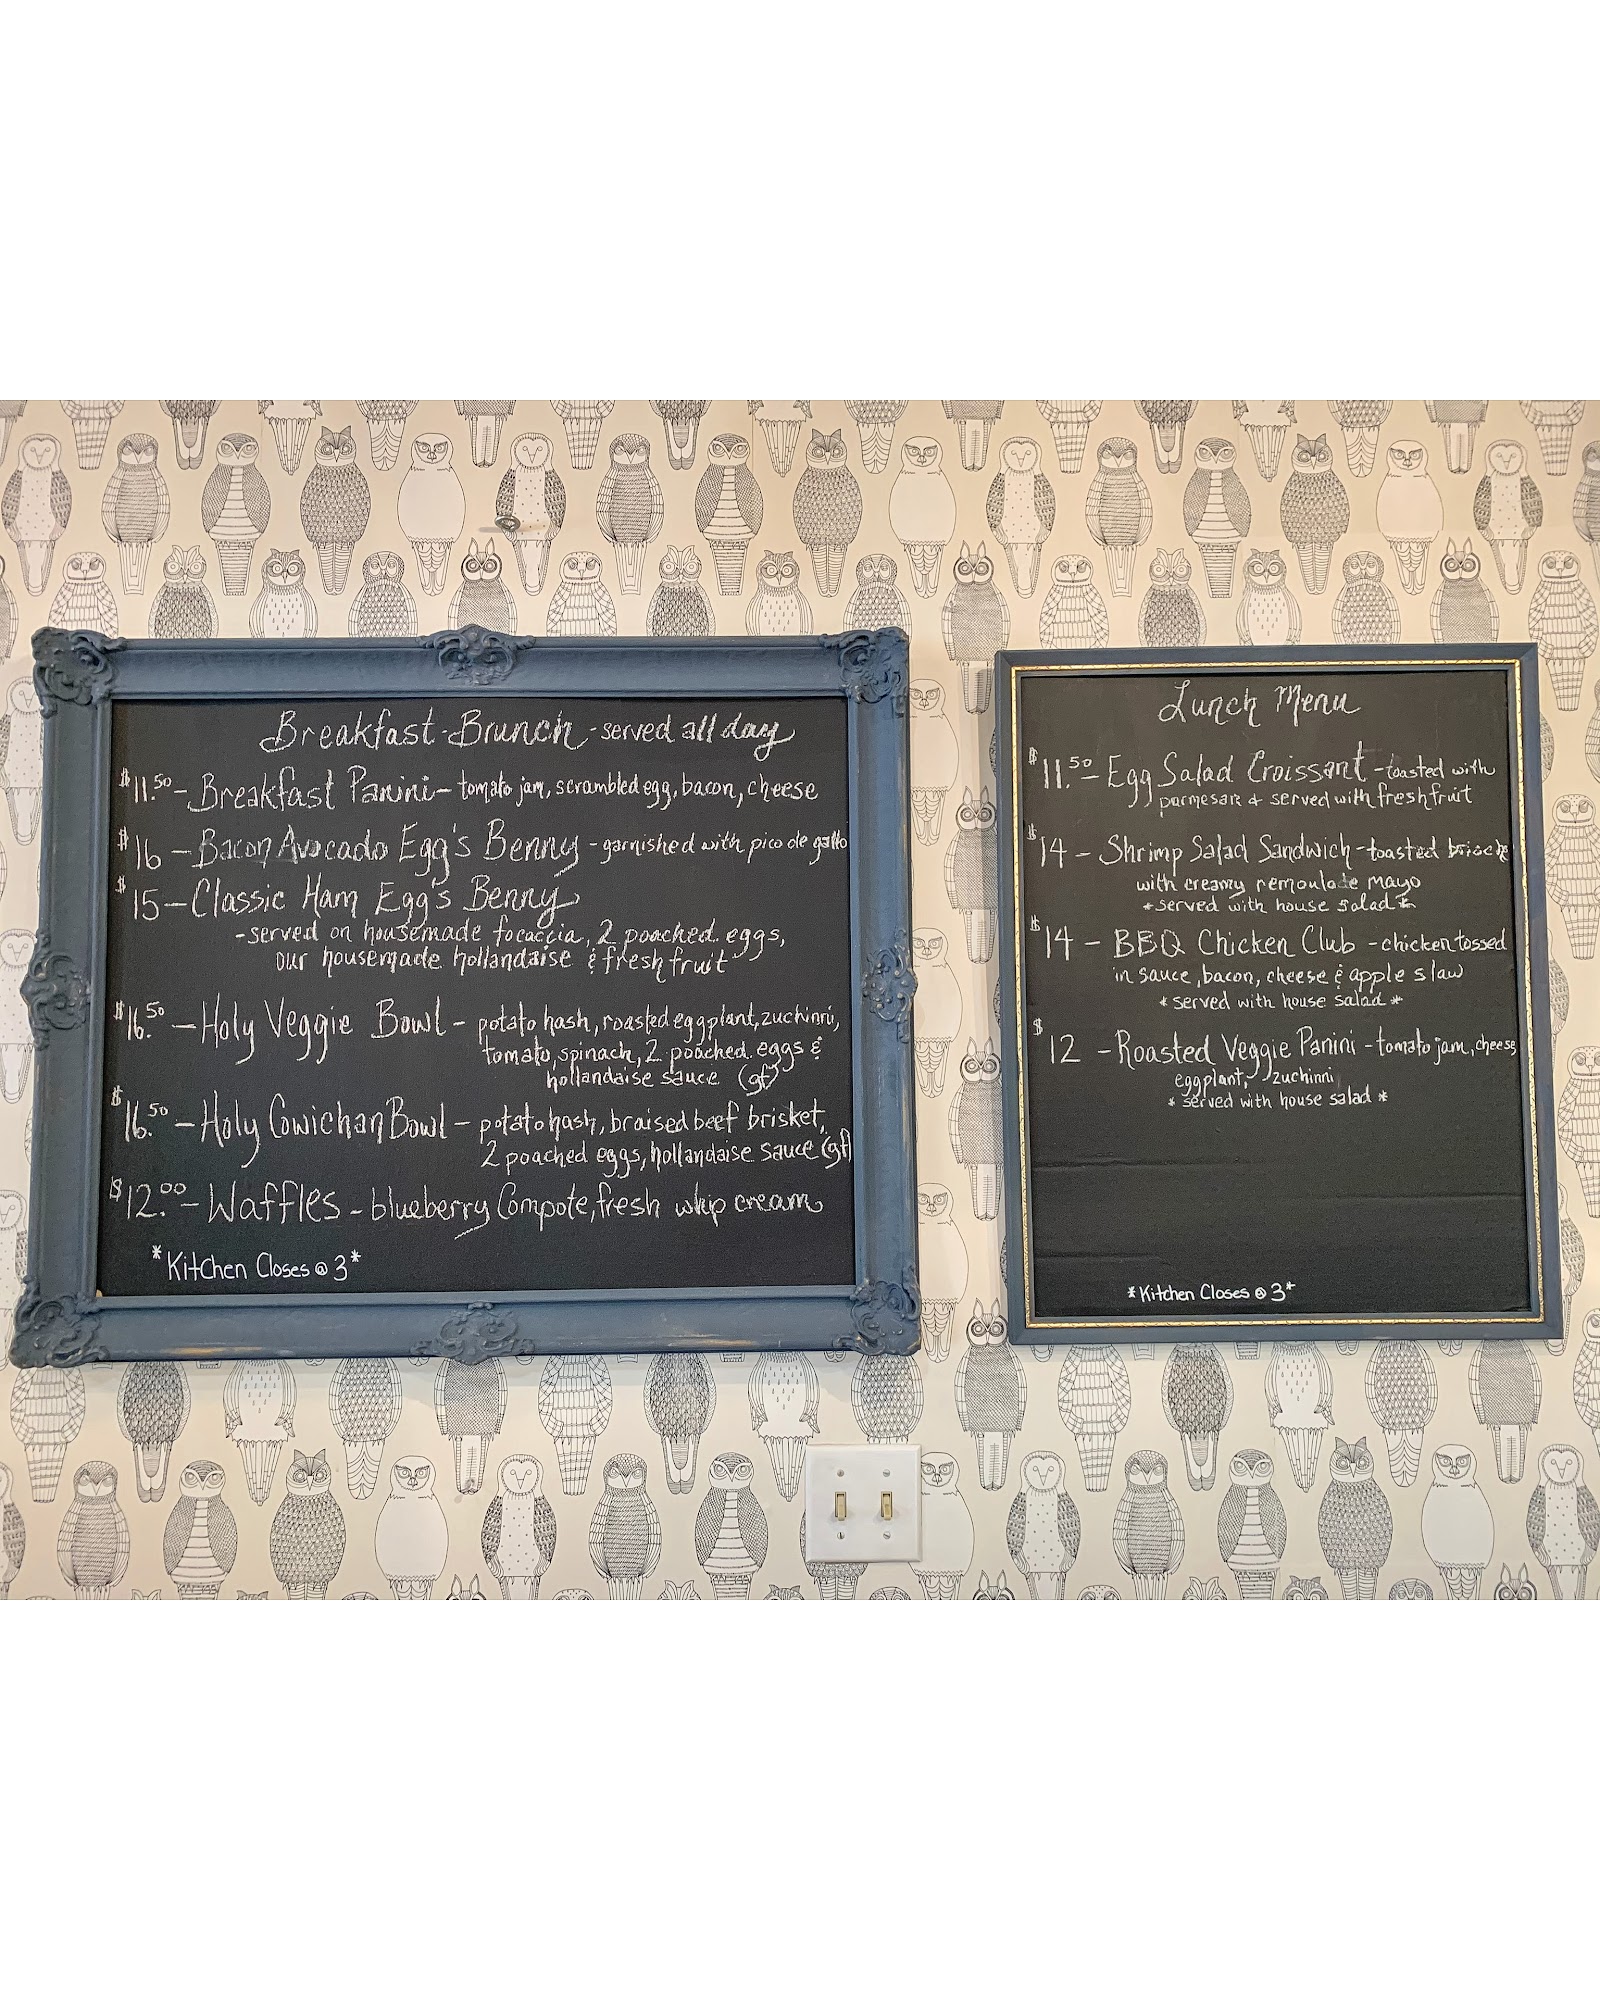 Breakfast-Brunch - served all day
$11.50 - Breakfast Panini - tomato jam, scrambled egg, bacon, cheese
$16 - Bacon Avocado Egg's Benny - garnished with pico de gallo
$15 - Classic Ham Egg's Benny
- served on housemade focaccia, 2 poached eggs,
our housemade hollandaise & fresh fruit
$16.50 - Holy Veggie Bowl - potato hash, roasted eggplant, zuchinni,
tomato, spinach, 2 poached eggs &
hollandaise sauce (gf)
$16.50 - Holy Cowichan Bowl - potato hash, braised beef brisket,
2 poached eggs, hollandaise sauce (gf)
$12.00 - Waffles - blueberry Compote, fresh whip cream
*Kitchen Closes @ 3*
Lunch Menu
$11.50 - Egg Salad Croissant - toasted with
parmesan & served with fresh fruit
$14 - Shrimp Salad Sandwich - toasted
with creamy remoulade mayo
*served with house salad*
$14 - BBQ Chicken Club - chicken tossed
in sauce, bacon, cheese & apple slaw
*served with house salad*
$12 - Roasted Veggie Panini - tomato jam, cheese,
eggplant, zuchinni
*served with house salad*
*Kitchen Closes @ 3*